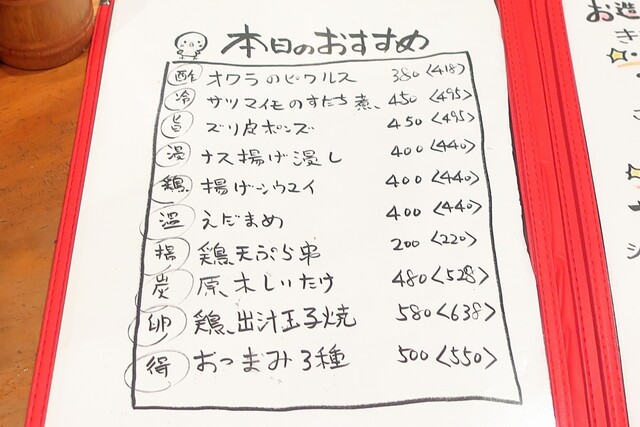 本日のおすすめ
酢 オクラのピクルス 380<418>
冷 サツマイモのすだち煮 450<495>
旨 ズリ皮ポンズ 450<495>
浸 ナス揚げ浸し 400<440>
鶏 揚げシウマイ 400<440>
温 えだまめ 400<440>
揚 鶏天ぷら串 200<220>
炭 原木しいたけ 480<528>
卵 鶏出汁玉子焼 580<638>
得 おつまみ3種 500<550>
お造